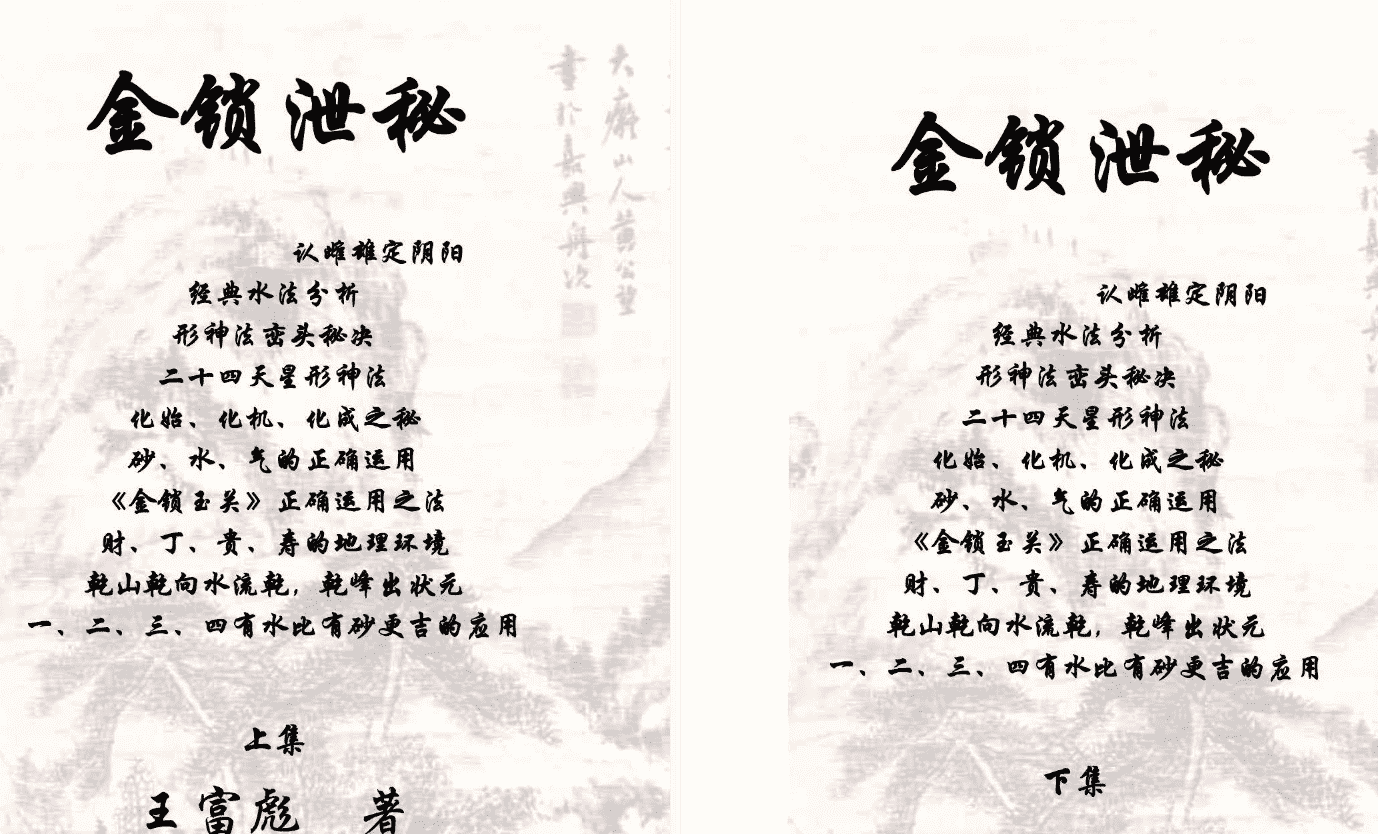 金锁泄秘
认雌雄定阴阳
经典水法分析
形神法峦头秘决
二十四天星形神法
化始、化机、化成之秘
砂、水、气的正确运用
《金锁玉关》正确运用之法
财、丁、贵、寿的地理环境
乾山乾向水流乾，乾峰出状元
一、二、三、四有水比有砂更吉的应用
上集
王富彪 著
大痴山人黄公望
画于嘉兴舟次
金锁泄秘
认雌雄定阴阳
经典水法分析
形神法峦头秘决
二十四天星形神法
化始、化机、化成之秘
砂、水、气的正确运用
《金锁玉关》正确运用之法
财、丁、贵、寿的地理环境
乾山乾向水流乾，乾峰出状元
一、二、三、四有水比有砂更吉的应用
下集